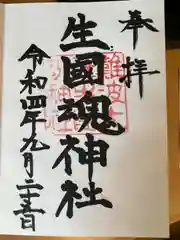 奉拝
生國魂神社
令和四年九月二十三日